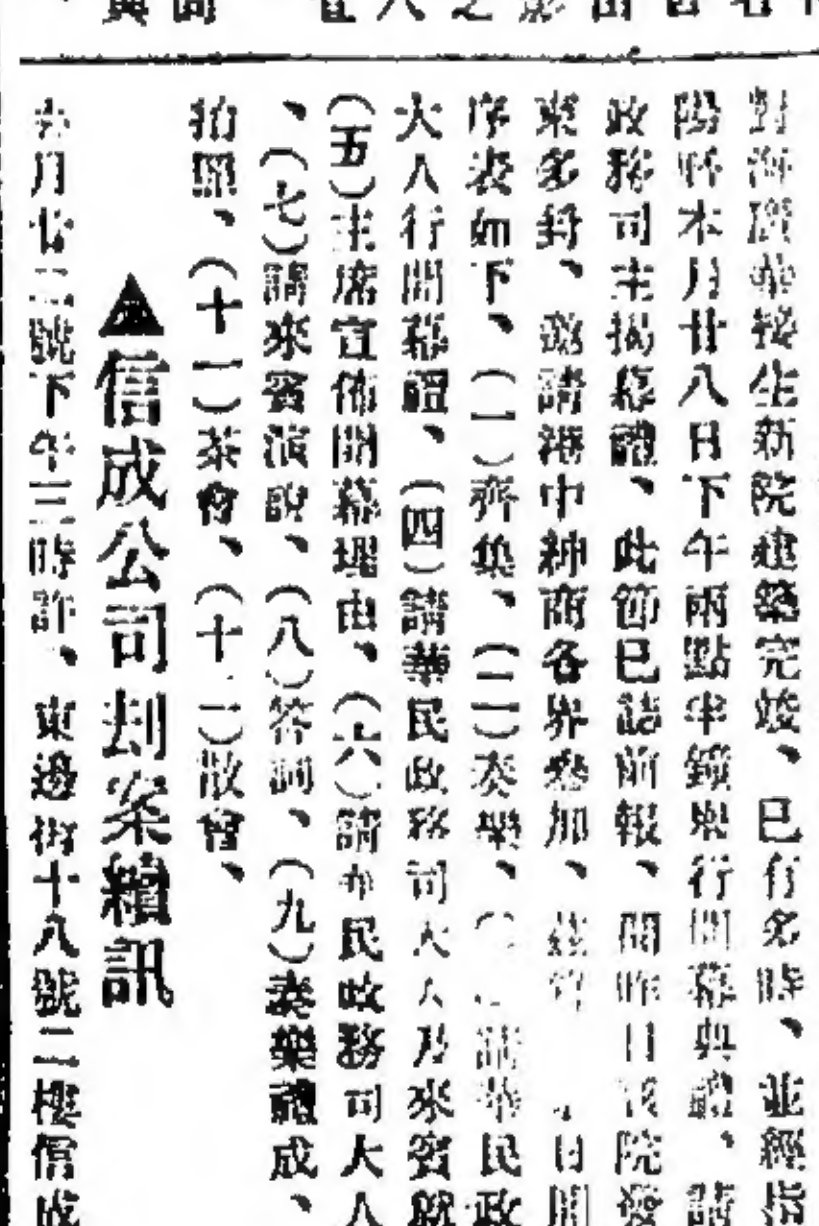 對海廣華接生新院建築完竣、已有多時、並經
陽歷本月廿八日下午兩點半鐘舉行開幕典禮、請
政務司主揭幕禮、此節已誌前報、聞昨日該院發
柬多封、邀請港中紳商各界參加、茲 日開
序表如下、(一)齊集、(二)奏樂、 請華民政
大人行開幕禮、(四)請華民政務司大人及來賓就
(五)主席宣佈開幕理由、(六)請華民政務司大人
、(七)請來賓演說、(八)答詞、(九)奏樂禮成、
拍照、(十一)茶會、(十二)散會、
▲信成公司刦案續訊
去月廿二號下午三時許、東邊街十八號二樓信成